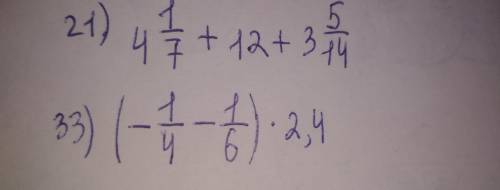 21) 4 1/7 + 12 + 3 5/14
33) (- 1/4 - 1/6) · 2,4